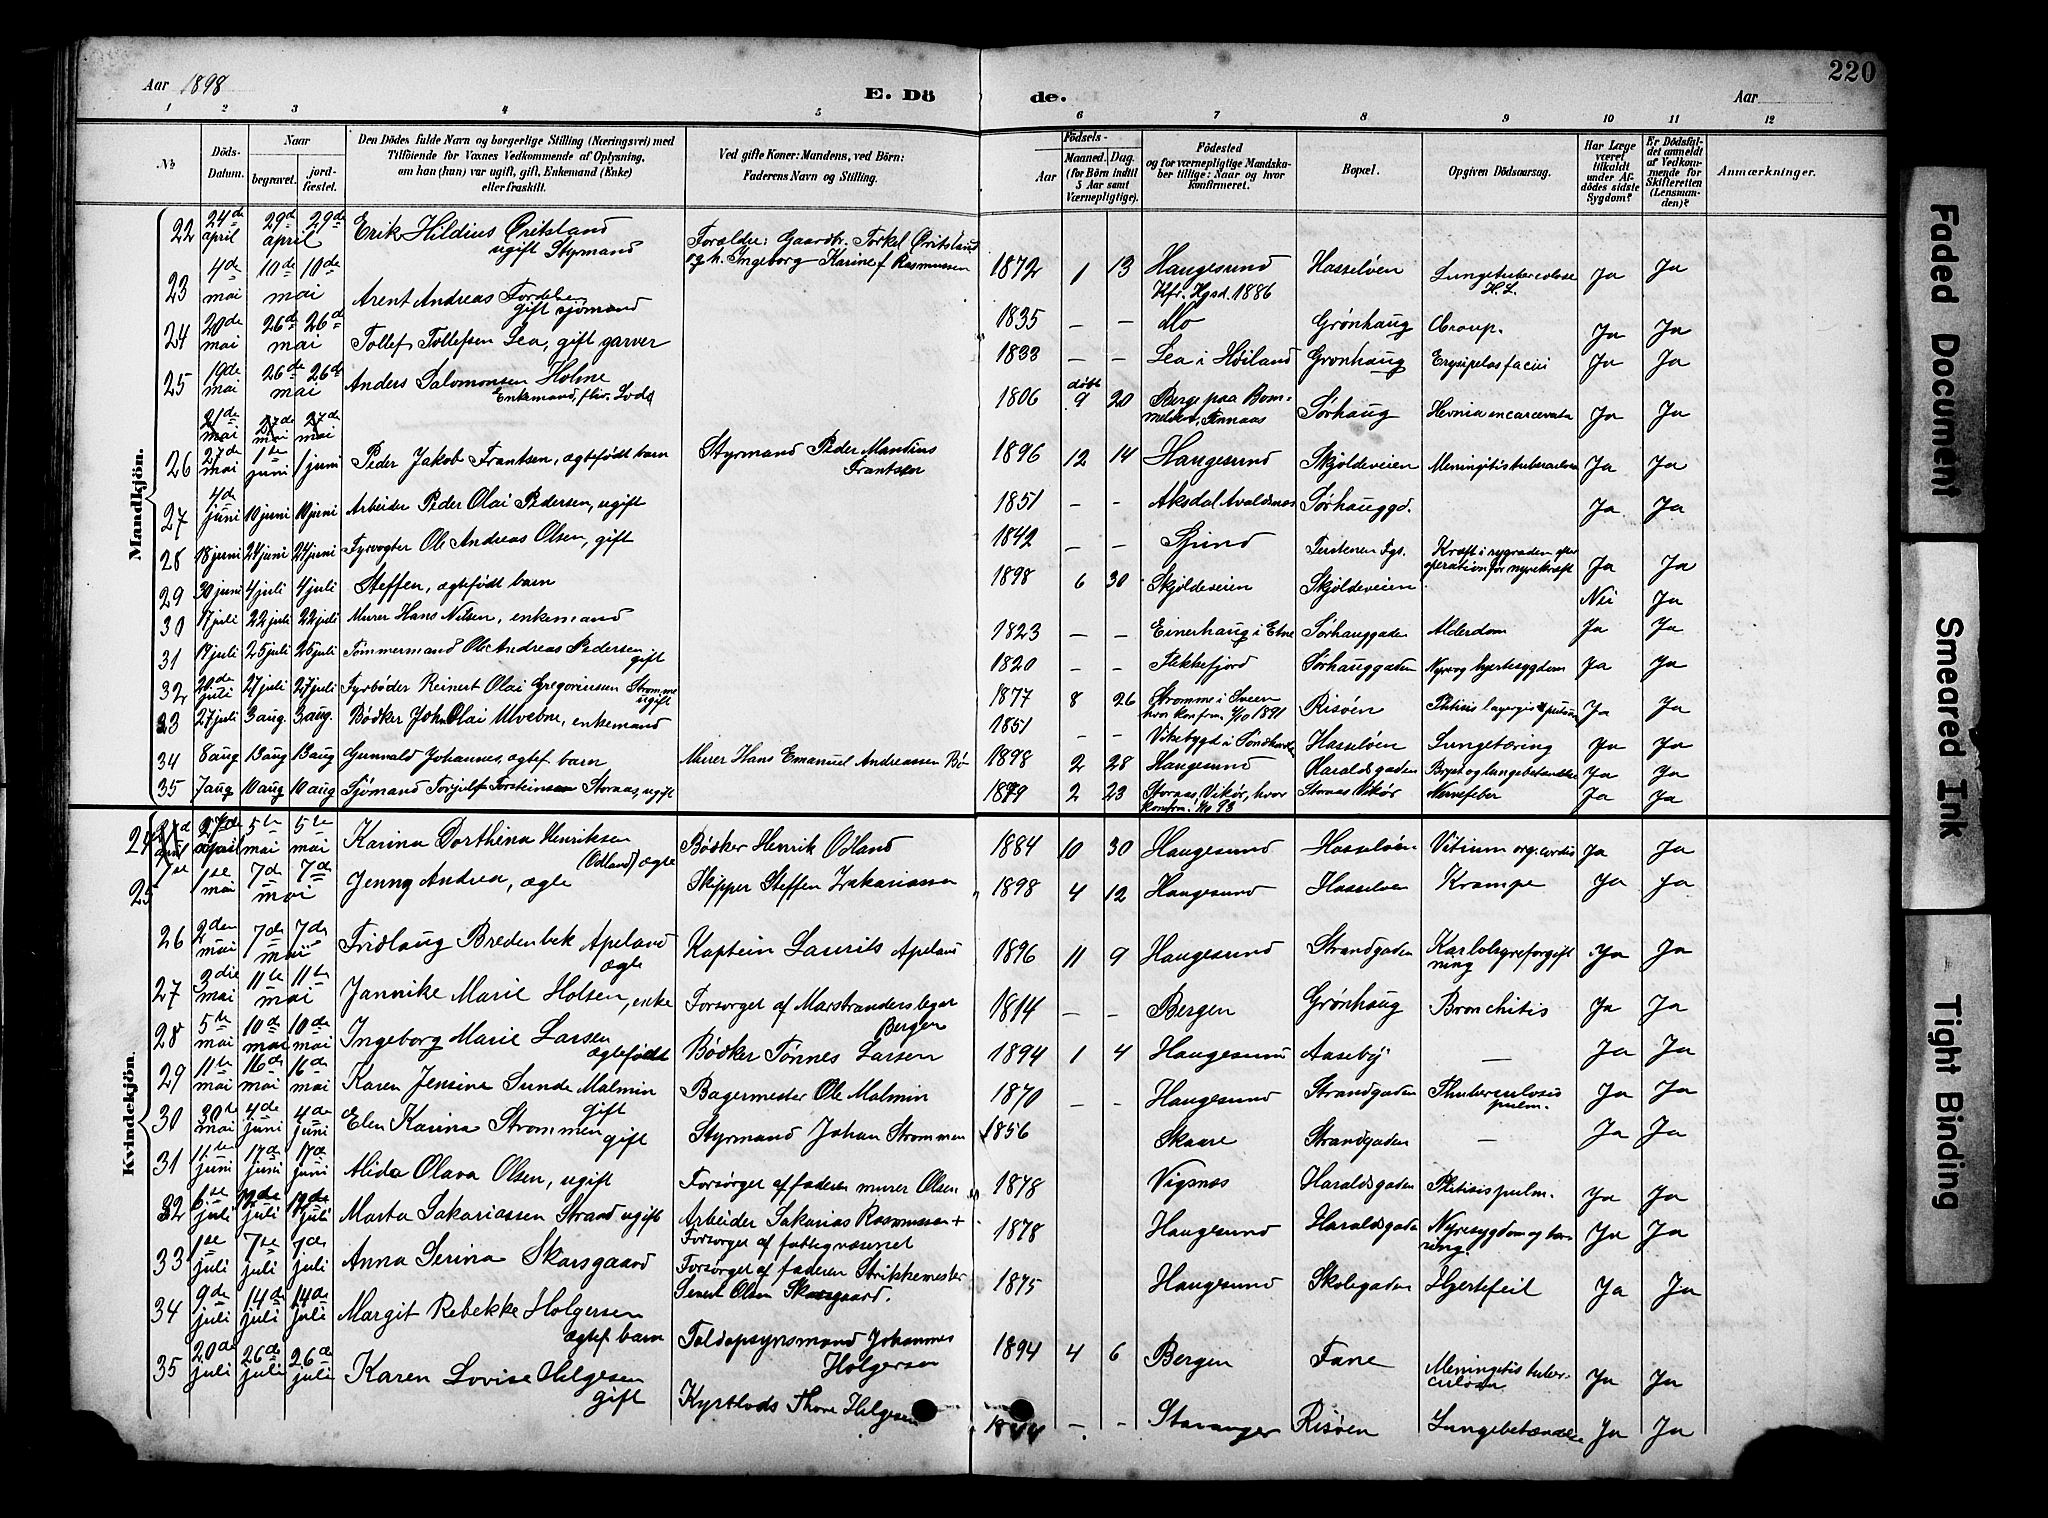 Aar 1898
E. Dö de.
Aar
220
1 2 3 4 5 6 7 8 9 10 11 12
№
Döds-Datum.
Naar
begravet.
jordfæstet.
Den Dödes fulde Navn og borgerlige Stilling (Næringsvei) med Tilföiende for Voxnes Vedkommende af Oplysning, om han (hun) var ugift, gift, Enkemand (Enke) eller fraskilt.
Ved gifte Koner: Mandens, ved Börn: Faderens Navn og Stilling.
Födsels-
Aar
Maaned. Dag.
(for Börn indtil 5 Aar samt Værnepligtige).
Födested og for værnepligtige Mandskaber tillige: Naar og hvor konfirmeret.
Bopæl.
Opgiven Dödsaarsag.
Har Læge været tilkaldt under Afdödes sidste Sygdom?
Er Dödsfaldet anmeldt af Vedkommende for Skifteretten (Lensmanden)?
Anmærkninger.
Mandkjön.
22 24de april 29de april 29de Erik Hildius Øritsland ugift Styrmand Forældre: Gaardbr. Torkel Øritsland og h. Ingeborg Karine f Rasmussen 1872 1 13 Haugesund Kfr. Hgsd. 1886 Hasseløen Lungetuberculose H.L. Ja Ja
23 4de mai 10de mai 10de Arent Andreas gift sjømand 1835 — — Mo Grønhaug Croup. Ja Ja
24 20de mai 26de mai 26de Tollef Tollefsen Lea, gift garver 1833 — — Lea i Høiland Grønhaug Erysipelas faciei Ja Ja
25 19de mai 26de mai 26de Anders Salomonsen Holme Enkemand, fhv. Lods 1806 døbt 9 20 Berge paa Bommeløen, Finnaas Sørhaug Hernia incarcerata Ja Ja
21de mai 27de mai 27de mai
26 27de mai 1te juni 1 juni Peder Jakob Frantsen, ægtefødt barn Styrmand Peder Mandius Frantsen 1896 12 14 Haugesund Skjoldeveien Meningitis tuberculosa Ja Ja
27 4de juni 10 juni 10 juni Arbeider Peder Olai Pedersen, ugift 1851 — - Aksdal Avaldsnes Sørhauggd. Ja Ja
28 18 juni 24 juni 24 juni Fyrvogter Ole Andreas Olsen, gift 1842 — — Feistenen Fyr. Kræft i rygraden efter operation for nyrekræft Ja Ja
29 30 juni 4 juli 4 juli Steffen, ægtefødt barn 1898 6 30 Skjoldeveien Skjoldeveien Nei Ja
30 17 juli 22 juli 22 juli Murer Hans Nilsen, enkemand 1823 — — Einerhaug i Etne Sørhauggaden Alderdom Ja Ja
31 19 juli 25 juli 25 juli Tømmermand Ole Andreas Pedersen gift 1820 — — Flekkefjord Sørhauggaden Nyre og hjertesygdom Ja Ja
32 juli 27 juli 27 juli Fyrbøder Reinert Olai Gregoriussen Strømme ugift 1877 8 26 Strømme i Sveen hvor konfrm. 4/10 1891 Risøen Ja Ja
33 27 juli 3 aug. 3 aug. Bødker John Olai Ulvebne, enkemand 1851 — — Vikebygd i Søndhordl Hasseløen Lungetæring Ja Ja
34 8 aug 13 aug 13 aug Gunvald Johannes, ægtef barn Murer Hans Emanuel Andreassen Bø 1898 2 28 Haugesund Haraldsgaden Bryst og lungebetændelse Ja Ja
35 7 aug 10 aug 10 aug Sjømand Torjulf Torsteinsen Stornæs, ugift 1879 2 23 Stornæs, Vikør, hvor konfrm. 93 Stornæs Vikør Nervefeber Ja Ja
Kvindekjön.
24 27de april 5te mai 5te mai Karina Dorthina Henriksen (Odland) ægte Bødker Henrik Odland 1884 10 30 Haugesund Hasseløen Vitium org. cordis Ja Ja
25 1ste mai 7de mai 7de Jenny Andrea, ægte Skipper Steffen Zakariassen 1898 4 12 Haugesund Hasseløen Krampe Ja Ja
26 2den mai 7de mai 7de Fridlaug Bredenbek Apeland ægte Kaptein Laurits Apeland 1896 11 9 Haugesund Strandgaden Karbolsyreforgiftning Ja Ja
27 3die mai 11te mai 11te Jannike Marie Holsen, enke Forsørget af Marstranders legat Bergen 1814 — — Bergen Grønhaug Bronchitis Ja Ja
28 5te mai 10de mai 10de mai Ingeborg Marie Larsen ægtefødt Bødker Tønnes Larsen 1894 1 4 Haugesund Aaseby — Ja Ja
29 11te mai 16de mai 16de mai Karen Jensine Sunde Malmin gift Bagermester Ole Malmin 1870 — — Haugesund Strandgaden Thuberculosis pulm. Ja Ja
30 30te mai 4de juni 4de juni Elen Karina Strømmen gift Styrmand Johan Strømmen 1856 Skaare Strandgaden — Ja Ja
31 11te juni 17de juni 17de juni Alida Olava Olsen, ugift Forsørget af faderen murer Olsen 1878 Vigsnes Haraldsgaden Phtisis pulm. Ja Ja
32 6te juli 12de juli 12de juli Marta Sakariassen Strand ugift Arbeider Sakarias Rasmussen + Forsørget af fattigvæsenet 1878 Haugesund Haraldsgaden Nyresygdom og tæring Ja Ja
33 1ste juli 7de juli 7de juli Anna Serina Skarsgaard Forsørget af faderen Strikkemester Sivert Olsen Skarsgaard. 1875 Haugesund Skolegaden Hjertefeil Ja Ja
34 9de juli 14de juli 14de juli Margit Rebekke Holgersen ægtef barn Toldopsynsmand Johannes Holgersen 1894 4 6 Bergen Fane Meningitis tuberculosa Ja Ja
35 20de juli 26de juli 26de juli Karen Lovise Helgesen gift Kystlods Thore Helgesen 1844 — - Stavanger Risøen Lungebetændelse Ja Ja
Faded Document
Smeared Ink
Tight Binding